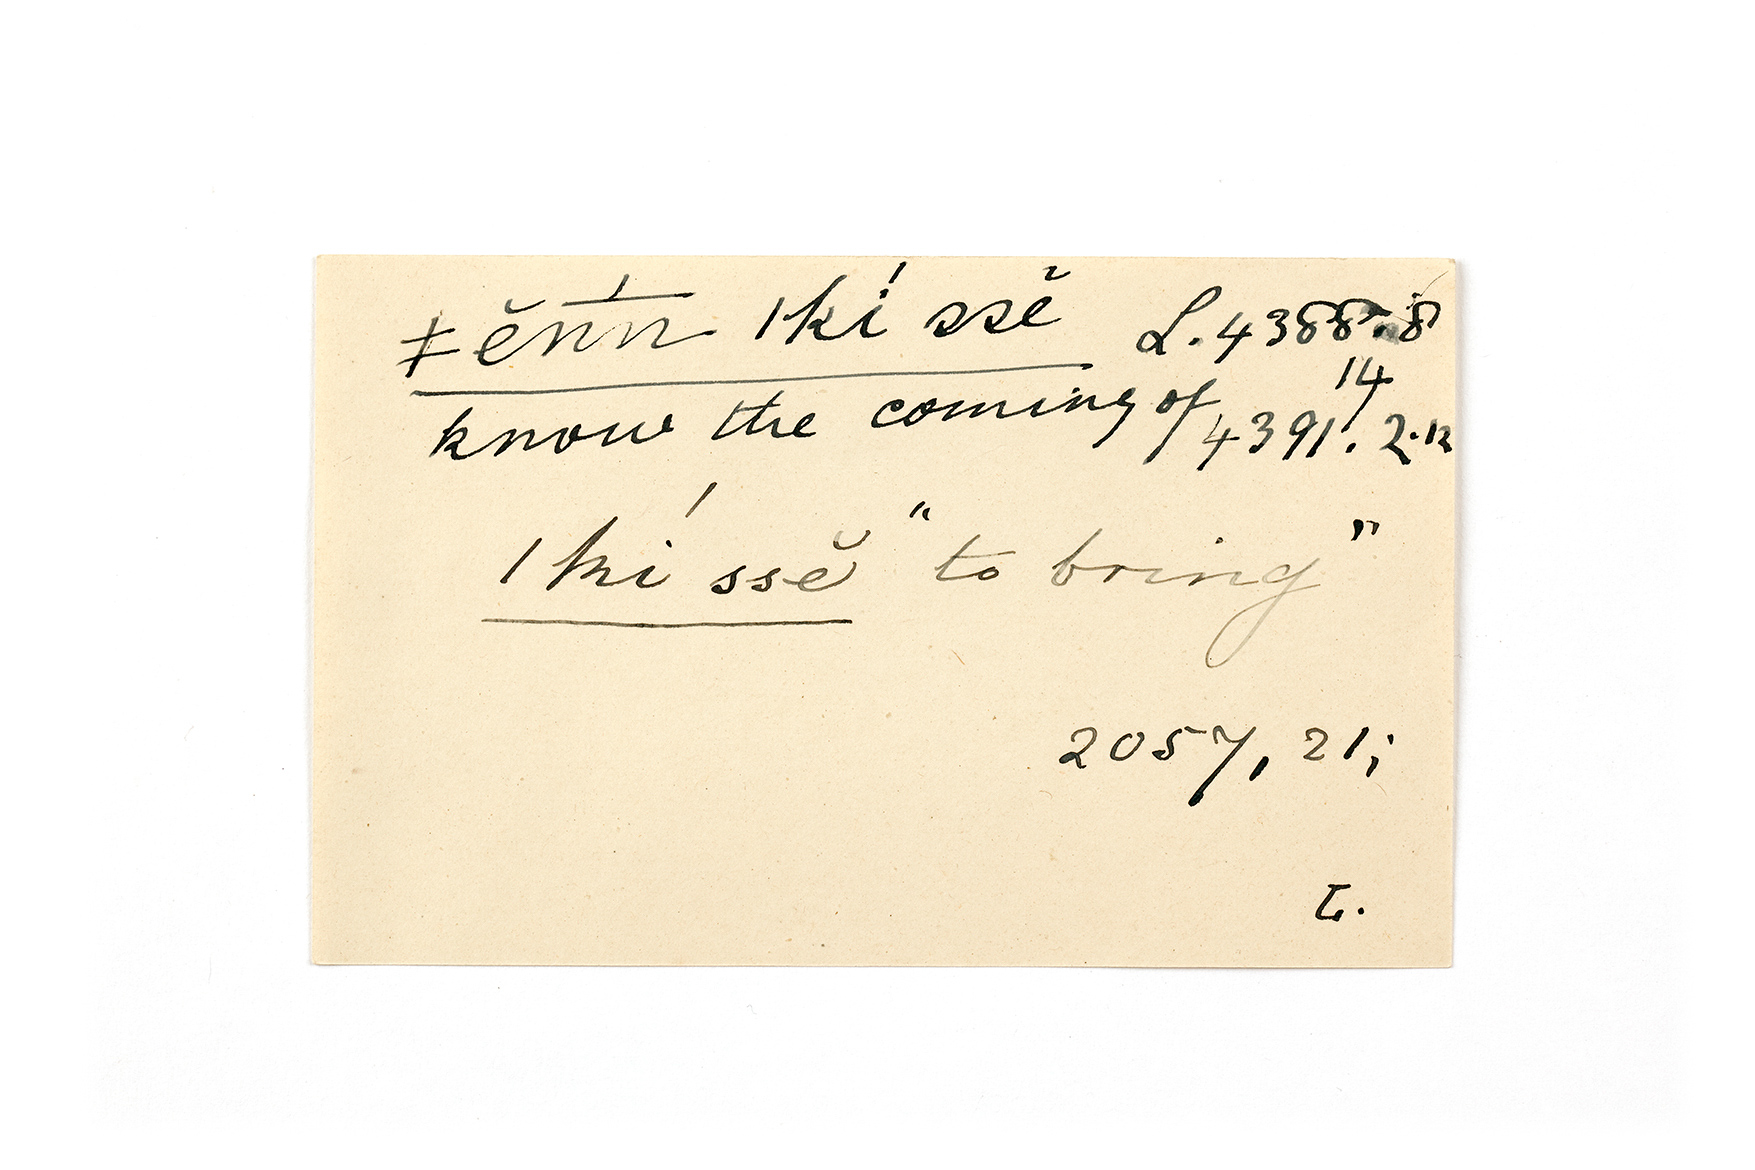 ǂĕnn ǀkí ssĕ L. 4388. 8
14
know the coming of 4391. 2.12
ǀkí ssĕ "to bring"
2057, 21;
L.